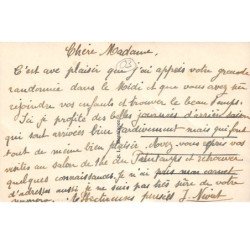 Chère Madame,
C'est avec plaisir que j'ai appris votre grande
randonnée dans le Midi et que vous avez pu
rejoindre vos enfants et trouver le beau temps.
Ici je profite des belles journées d'arrière saison
qui sont arrivées bien tardivement mais qui font
tout de même bien plaisir. Avez vous après vos
visites au salon de thé du Printemps et retrouver
quelques connaissances, je n'ai pris mon carnet
d'adresses aussi je ne suis pas très sûre de votre
numéro. Affectueuses pensées J.
23